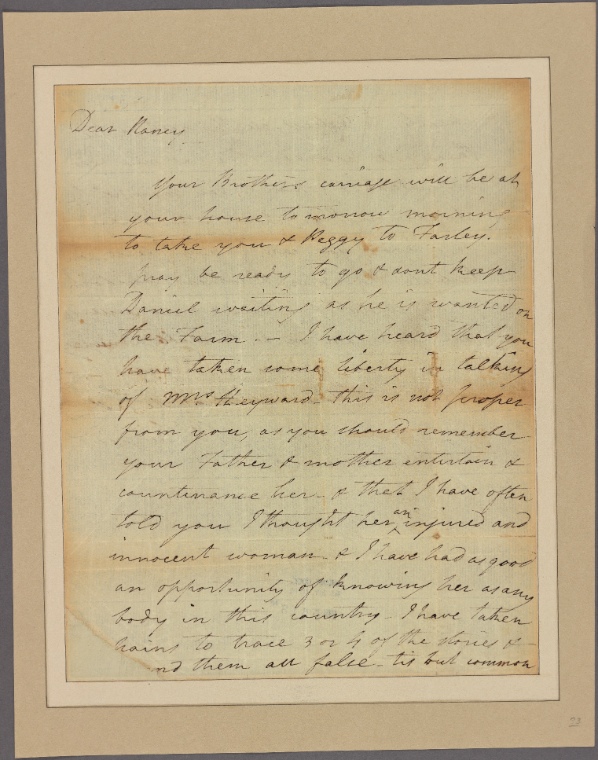 Dear Nancy
Your Brothers carriage will be at
your house tomorrow morning
to take you & Peggy to Farley.
pray be ready to go & dont keep
Daniel waiting as he is wanted on
the Farm. - I have heard that you
have taken some liberty in talking
of Mrs Heyward this is not proper
from you, as you should remember
your Father & mother entertain &
countinance her & that I have often
told you I thought her an injured and
innocent woman & I have had as good
an opportunity of knowing her as any
body in this country I have taken
pains to trace 3 or 4 of the stories &
nd them all false - tis but common
22